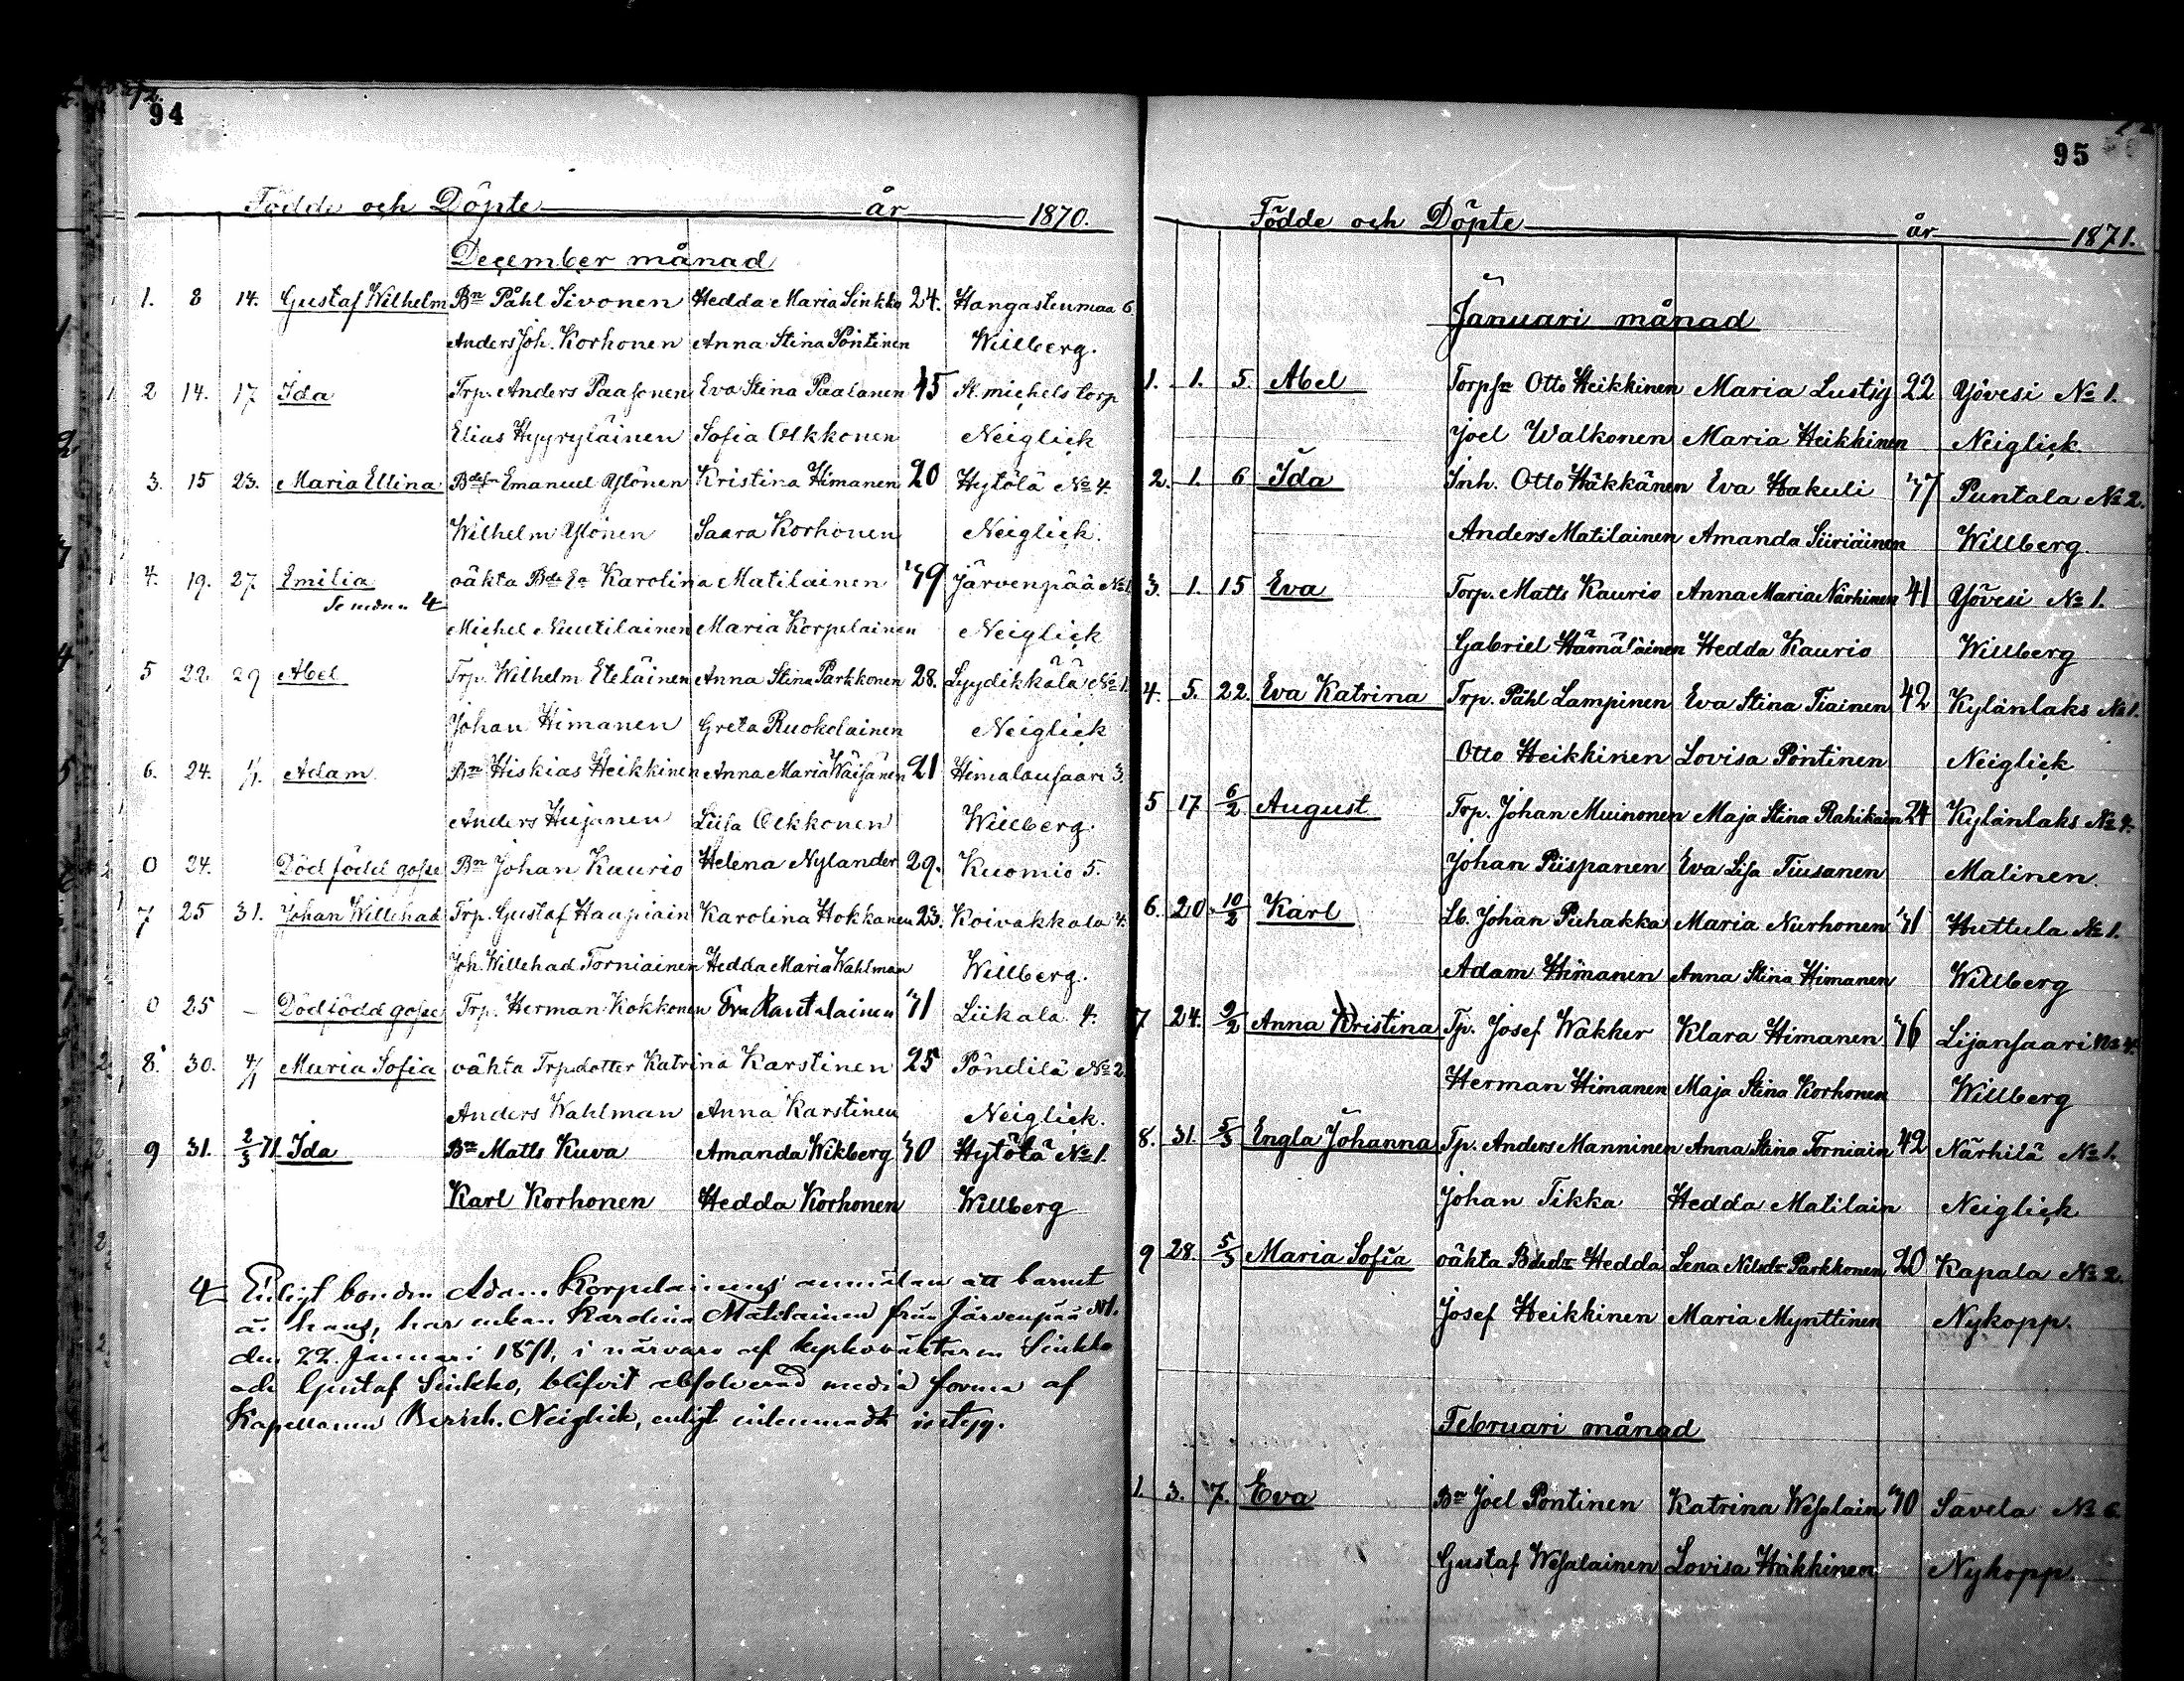 94
Födde och Döpte år 1870.
December månad
1. 8 14. Gustaf Wilhelm Bn Påhl Sivonen Hedda Maria Sinkko 24. Hangastenmaa 6
Anders Joh. Korhonen Anna Stina Pöntinen Willberg.
2 14. 17 Ida Trp. Anders Paasonen Eva Stina Paalanen 45 St. michels torp
Elias Hyyryläinen Sofia Olkkonen Neiglick
3. 15 23. Maria Ellina Bdsn Emanuel Ylönen Kristina Himanen 20 Hytölä No 4.
Wilhelm Ylönen Saara Korhonen Neiglick.
4. 19. 27 Emilia oäkta Bde Ea Karolina Matilainen 39 Järvenpää No 1
Se nedan 4
Michel Nuutilainen Maria Korpelainen Neiglick
5 22. 29 Abel Trp. Wilhelm Eteläinen Anna Stina Parkkonen 28. Lyydikkälä No 1.
Johan Himanen Greta Ruokolainen Neiglick
6. 24. 1/1. Adam Bn Hiskias Heikkinen Anna Maria Wäisänen 21 Himalansaari 3.
Anders Hujanen Liisa Olkkonen Willberg.
0 24. Död född gosse Bn Johan Kaurio Helena Nylander 29. Kuomio 5.
7 25 31. Johan Willehad Trp. Gustaf Haapiain Karolina Hokkanen 23. Koivakkala 4.
Joh. Willehad Torniainen Hedda Maria Wahlman Willberg.
0 25 — Dödfödd gosse Trp. Herman Kokkonen Eva Rautalainen 31 Liikala 4.
8. 30. 4/1 Maria Sofia oäkta Trpdotter Katrina Karstinen 25 Pöndilä No 2
Anders Wahlman Anna Karstinen Neiglick.
9 31. 2/3 71 Ida Bn Matts Kuva Amanda Wikberg 30 Hytölä No 1.
Karl Korhonen Hedda Korhonen Willberg
4 Enligt bonden Adam Korpelainens anmälan att barnet
är hans, har enkan Karolina Matilainen från Järvenpää No 1.
den 22 Januari 1871, i närvaro af Sinkko
och Gustaf Sinkko, blifvit absolverad media forma af
Kapellanen Neiglick, enligt intyg.
95
Födde och Döpte år 1871.
Januari månad
1. 1. 5. Abel Torpsn Otto Heikkinen Maria Lustig 22 Yövesi No 1.
Joel Walkonen Maria Heikkinen Neiglick.
2. 1. 6 Ida Inh. Otto Häkkänen Eva Hakuli 37 Puntala No 2.
Anders Matilainen Amanda Siiriäinen Willberg.
3. 1. 15 Eva Torp. Matts Kaurio Anna Maria Närhinen 41 Yövesi No 1.
Gabriel Hämäläinen Hedda Kaurio Willberg
4. 5. 22. Eva Katrina Trp. Påhl Lampinen Eva Stina Tiainen 42 Kylänlaks No 1.
Otto Heikkinen Lovisa Pöntinen Neiglick
5 17 6/2 August Trp. Johan Muinonen Maja Stina Rahikain 24 Kylänlaks No 4.
Johan Piispanen Eva Lisa Tiusanen Malinen.
6. 20. 10/2 Karl Lb. Johan Puhakka Maria Nurhonen 31 Huttula No 1.
Adam Himanen Anna Stina Himanen Willberg
7 24. 9/2 Anna Kristina Tp. Josef Wakker Klara Himanen 36 Lijansaari No 4.
Herman Himanen Maja Stina Korhonen Willberg
8. 31. 5/3 Engla Johanna Tp. Anders Manninen Anna Stina Torniain 42 Närhilä No 1.
Johan Tikka Hedda Matilain Neiglick
9 28. 5/3 Maria Sofia oäkta Bdedr Hedda Lena Nilsdr Parkkonen 20 Kapala No 2.
Josef Heikkinen Maria Mynttinen Nykopp.
Februari månad
1. 3. 7. Eva Bn Joel Pöntinen Katrina Wesalain 30 Savela No 6.
Gustaf Wesalainen Lovisa Häkkinen Nykopp.